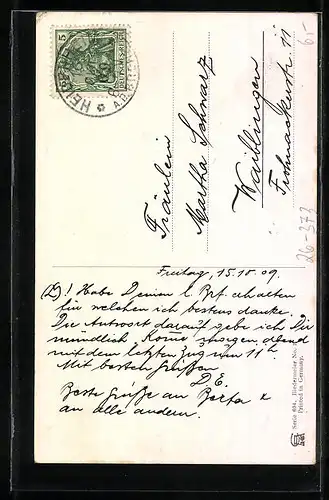 5
DEUTSCHES REICH
HEID
Fräulein
Martha Schwarz
Waiblingen
Fronackerstr. 11
6,-
26-373
Freitag, 15.10.09.
(L)! Habe Deinen l. Brf. erhalten
für welchen ich bestens danke.
Die Antwort darauf gebe ich Dir
mündlich. Komme morgen abend
mit dem letzten Zug um 11 h.
Mit besten Grüßen
D. E.
Beste Grüße an Berta &
an alle andern.
Serie 694. Biedermeier
Printed in Germany.